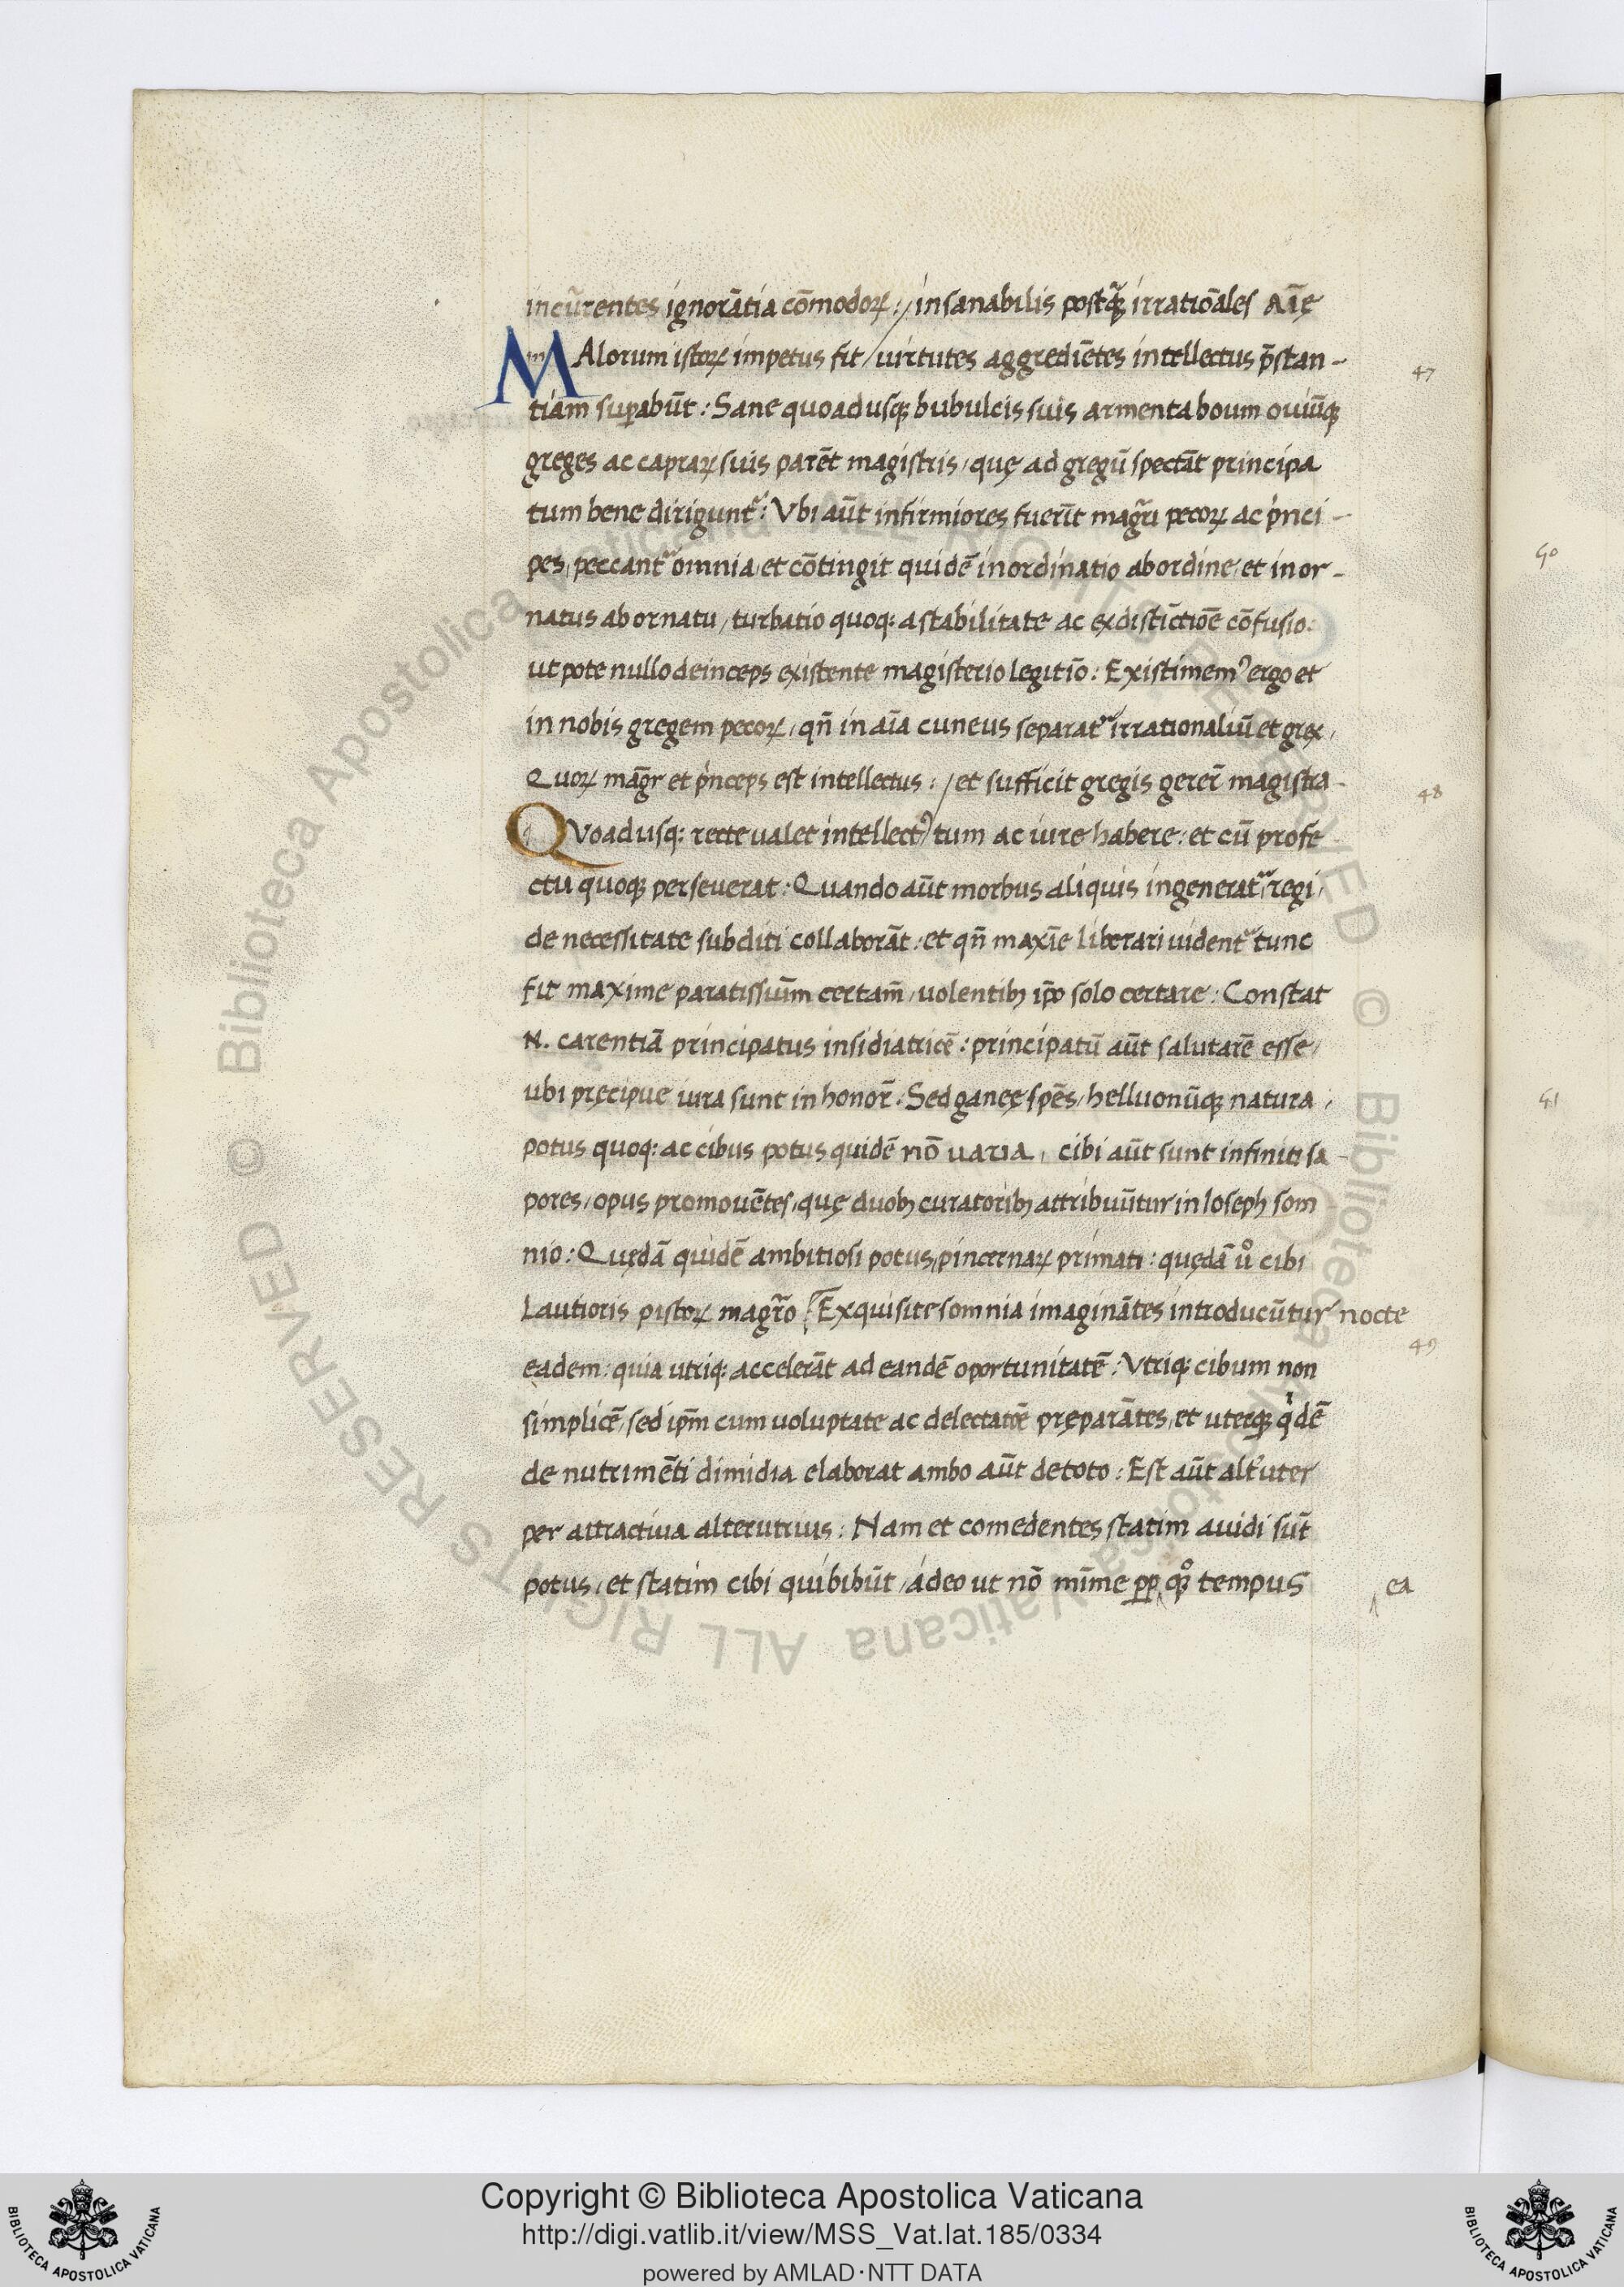 incūrentes ignorātia cōmodoꝝ : / insanabilis postq̄ꝫ irratiōales aīę
MAlorum istoꝝ impetus fit / uirtutes aggrediētes intellectus p̄stan-
tiam suꝑabūt : Sane quoadusqꝫ bubulcis suis armenta boum ouiūqꝫ
greges ac capraꝝ suis parēt magistris / quę ad gregū spectāt principa
tum bene dirigunt᷑ : Vbi aūt infirmiores fuerīt magr̄i pecoꝝ ac pͥnci -
pes / peccant᷑ omnia / et cōtingit quidē inordinatio ab ordine / et inor -
natus ab ornatu / turbatio quoq: a stabilitate ac ex distīctiōe cōfusio :
ut pote nullo deinceps existente magisterio legitīo : Existimemꝰ ergo et
in nobis gregem pecoꝝ / qn̄ in aīa cuneus separat᷑ irrationaliū et grex /
Quoꝝ māgr et pͥnceps est intellectus : / et sufficit gregis gerer̄ magistra -
QVoadusq: recte ualet intellectꝰ / tum ac iure habere : et cū profe
ctu quoqꝫ perseuerat : Quando aūt morbus aliquis ingenerat᷑ regi /
de necessitate subditi collaborāt : et qn̄ maxīe liberari uident᷑ tunc
fit maxime paratissiūm certam̄ / uolentibꝫ ip̄o solo certare : Constat
N. carentiā principatus insidiatricē : principatū aūt salutarē esse /
ubi pręcipue iura sunt in honor̄ . Sed ganeę spēs / helluonūqꝫ natura /
potus quoq: ac cibus potus quidē nō uaria , cibi aūt sunt infiniti sa -
pores / opus promouētes / quę duobꝫ curatoribꝫ attribuūtur in Ioseph som
nio : Quędā quidē ambitiosi potus / pincernaꝝ primati : quędā uͦ cibi
Lautioris pistoꝝ magr̄o : Exquisite somnia imaginātes introducūtur nocte
eadem : quia utriq: accelerāt ad eandē oportunitatē : Vtriqꝫ cibum non
simplicē / sed ip̄m cum uoluptate ac delectatōe pręparātes / et uterqꝫ qͥdē
de nutrimēti dimidia elaborat ambo aūt de toto : Est aūt alt'uter
per attractiua alterutrius : Nam et comedentes statim auidi sūt
potus / et statim cibi qui bibūt / adeo ut nō mīme ꝓp qͦꝫ tempus
ea
47
48
49
50
51
Copyright © Biblioteca Apostolica Vaticana
http://digi.vatlib.it/view/MSS_Vat.lat.185/0334
powered by AMLAD·NTT DATA
BIBLIOTECA APOSTOLICA VATICANA
BIBLIOTECA APOSTOLICA VATICANA
© Biblioteca Apostolica Vaticana ALL RIGHTS RESERVED © Biblioteca Apostolica Vaticana ALL RIGHTS RESERVED